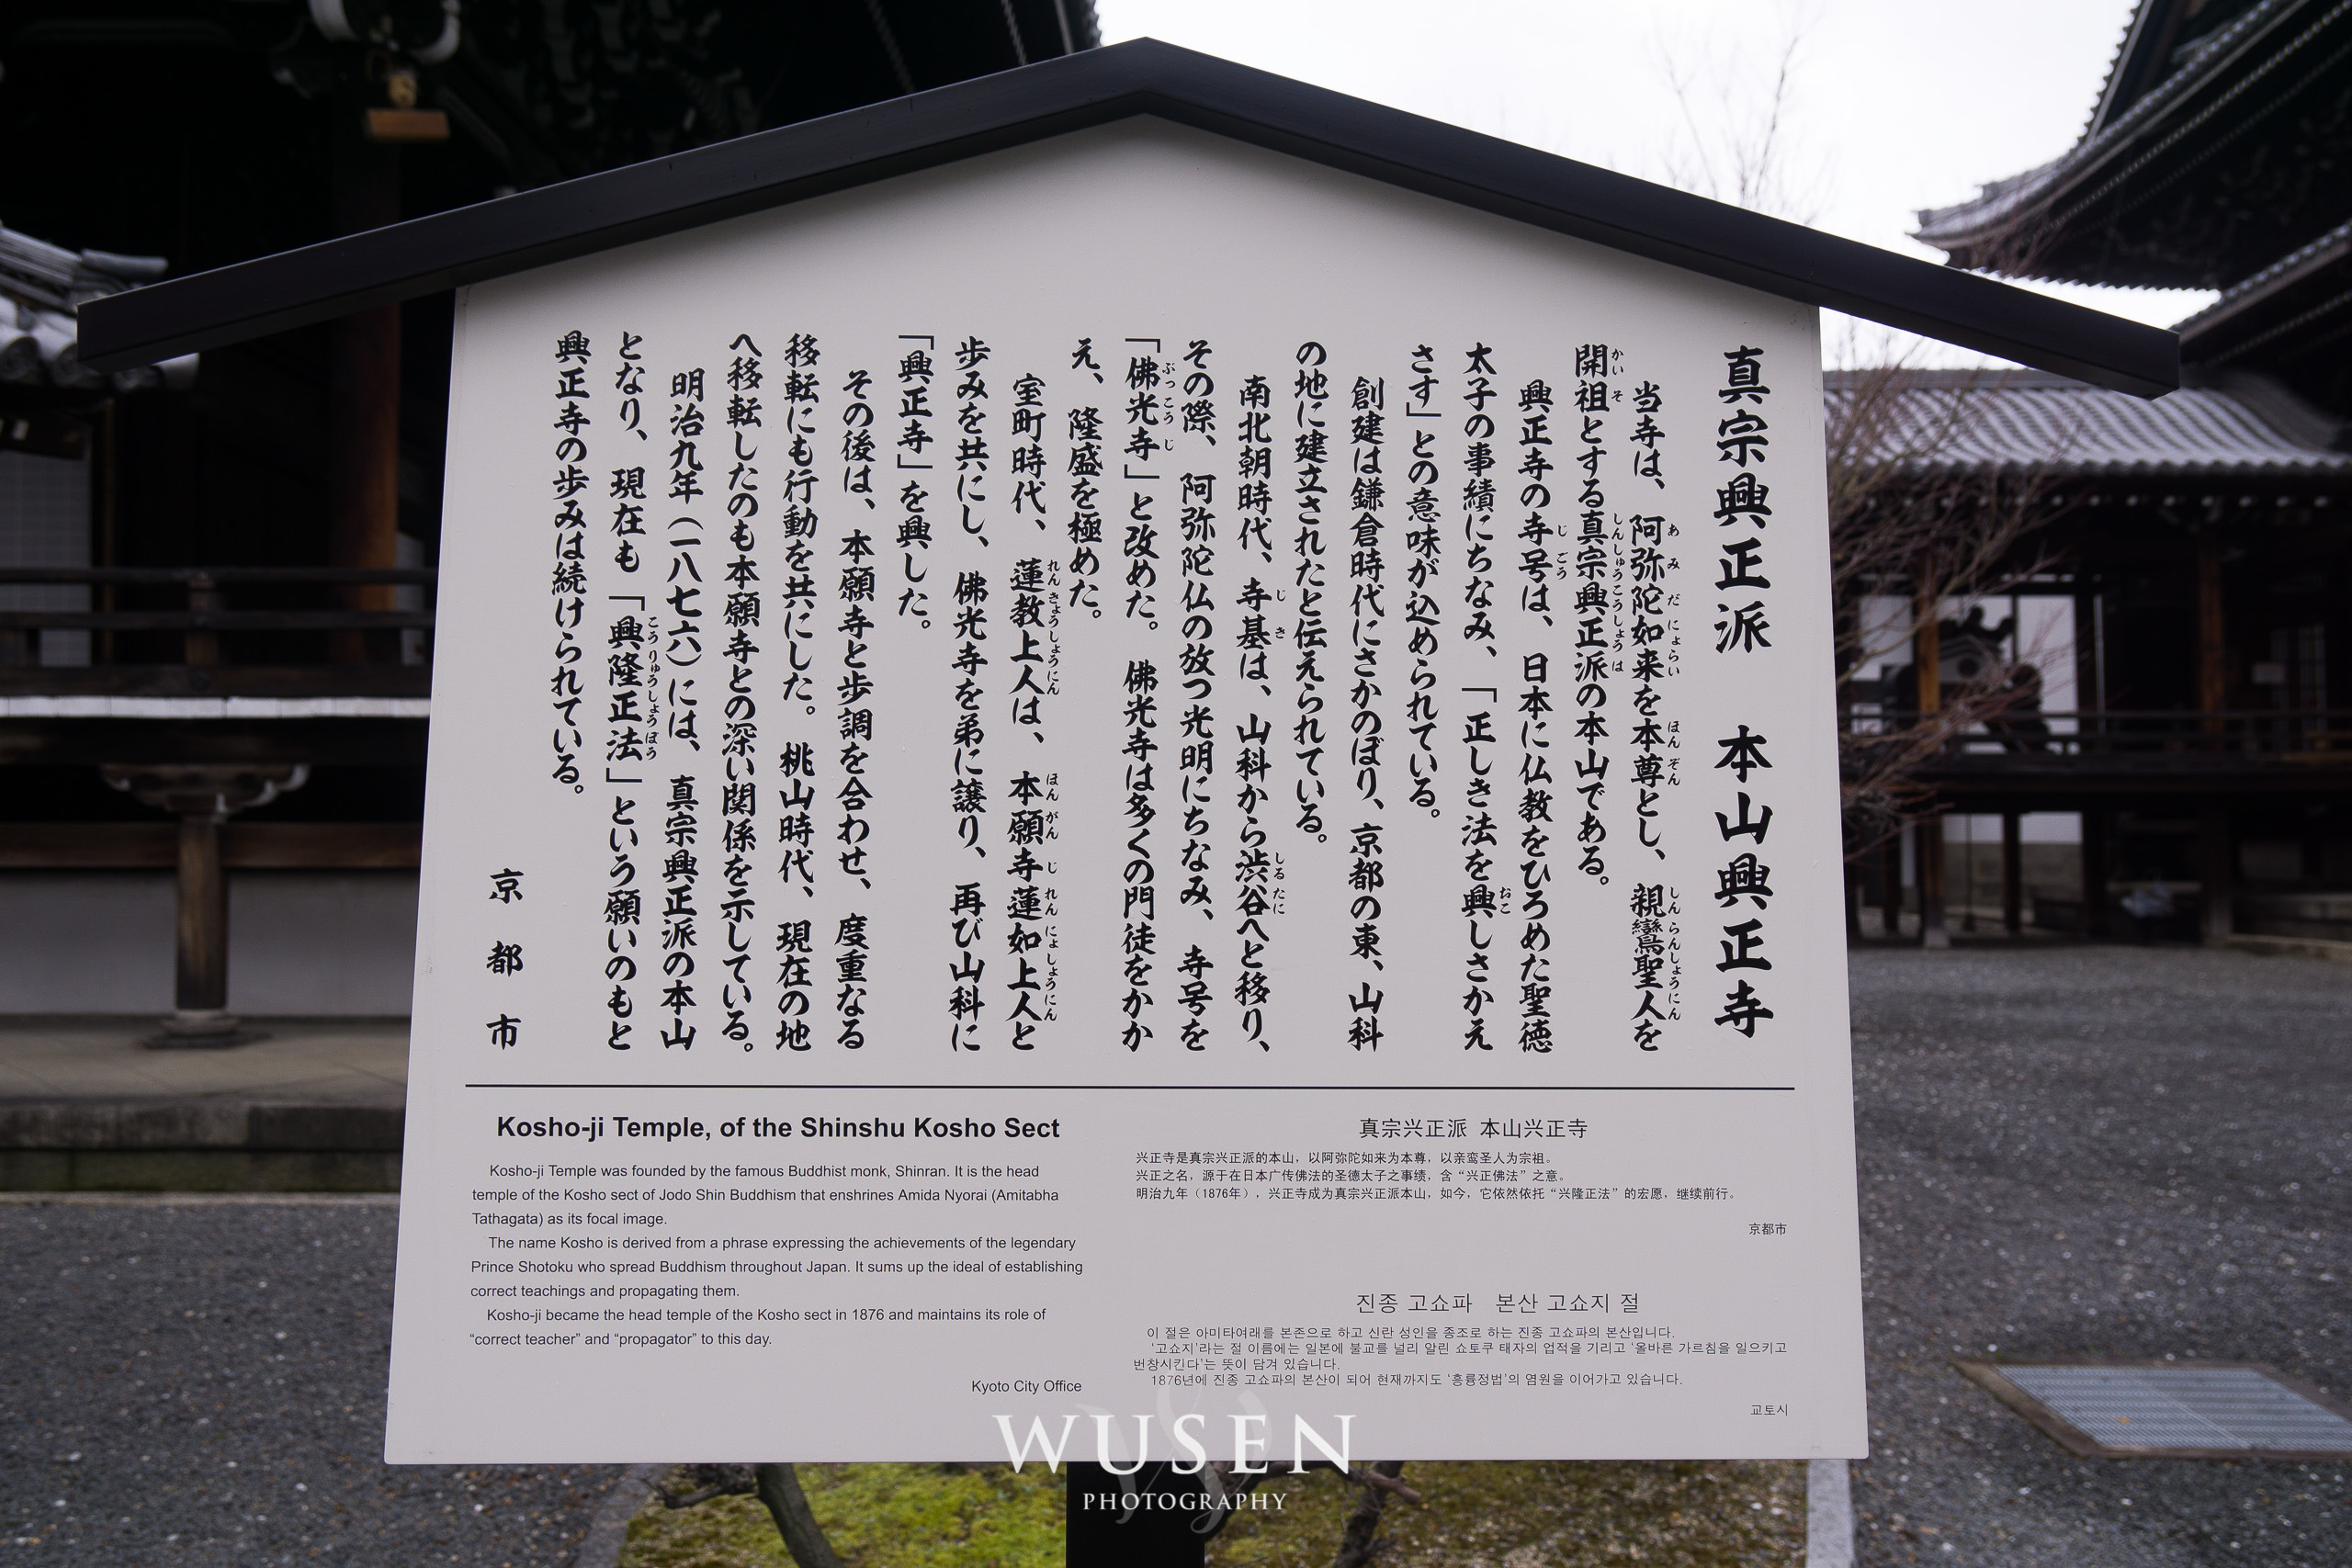 真宗興正派　本山興正寺
当寺は、阿弥陀如来を本尊とし、親鸞聖人を
開祖とする真宗興正派の本山である。
興正寺の寺号は、日本に仏教をひろめた聖徳
太子の事績にちなみ、「正しき法を興しさかえ
さす」との意味が込められている。
創建は鎌倉時代にさかのぼり、京都の東、山科
の地に建立されたと伝えられている。
南北朝時代、寺基は、山科から渋谷へと移り、
その際、阿弥陀仏の放つ光明にちなみ、寺号を
「佛光寺」と改めた。佛光寺は多くの門徒をかか
え、隆盛を極めた。
室町時代、蓮教上人は、本願寺蓮如上人と
歩みを共にし、佛光寺を弟に譲り、再び山科に
「興正寺」を興した。
その後は、本願寺と歩調を合わせ、度重なる
移転にも行動を共にした。桃山時代、現在の地
へ移転したのも本願寺との深い関係を示している。
明治九年（一八七六）には、真宗興正派の本山
となり、現在も「興隆正法」という願いのもと
興正寺の歩みは続けられている。
京都市
Kosho-ji Temple, of the Shinshu Kosho Sect
Kosho-ji Temple was founded by the famous Buddhist monk, Shinran. It is the head
temple of the Kosho sect of Jodo Shin Buddhism that enshrines Amida Nyorai (Amitabha
Tathagata) as its focal image.
The name Kosho is derived from a phrase expressing the achievements of the legendary
Prince Shotoku who spread Buddhism throughout Japan. It sums up the ideal of establishing
correct teachings and propagating them.
Kosho-ji became the head temple of the Kosho sect in 1876 and maintains its role of
“correct teacher” and “propagator” to this day.
Kyoto City Office
真宗兴正派 本山兴正寺
兴正寺是真宗兴正派的本山，以阿弥陀如来为本尊，以亲鸾圣人为宗祖。
兴正之名，源于在日本广传佛法的圣德太子之事绩，含“兴正佛法”之意。
明治九年（1876年），兴正寺成为真宗兴正派本山，如今，它依然依托“兴隆正法”的宏愿，继续前行。
京都市
진종 고쇼파 본산 고쇼지 절
이 절은 아미타여래를 본존으로 하고 신란 성인을 종조로 하는 진종 고쇼파의 본산입니다.
‘고쇼지’라는 절 이름에는 일본에 불교를 널리 알린 쇼토쿠 태자의 업적을 기리고 ‘올바른 가르침을 일으키고
번창시킨다’는 뜻이 담겨 있습니다.
1876년에 진종 고쇼파의 본산이 되어 현재까지도 ‘흥륭정법’의 염원을 이어가고 있습니다.
교토시
WUSEN
PHOTOGRAPHY